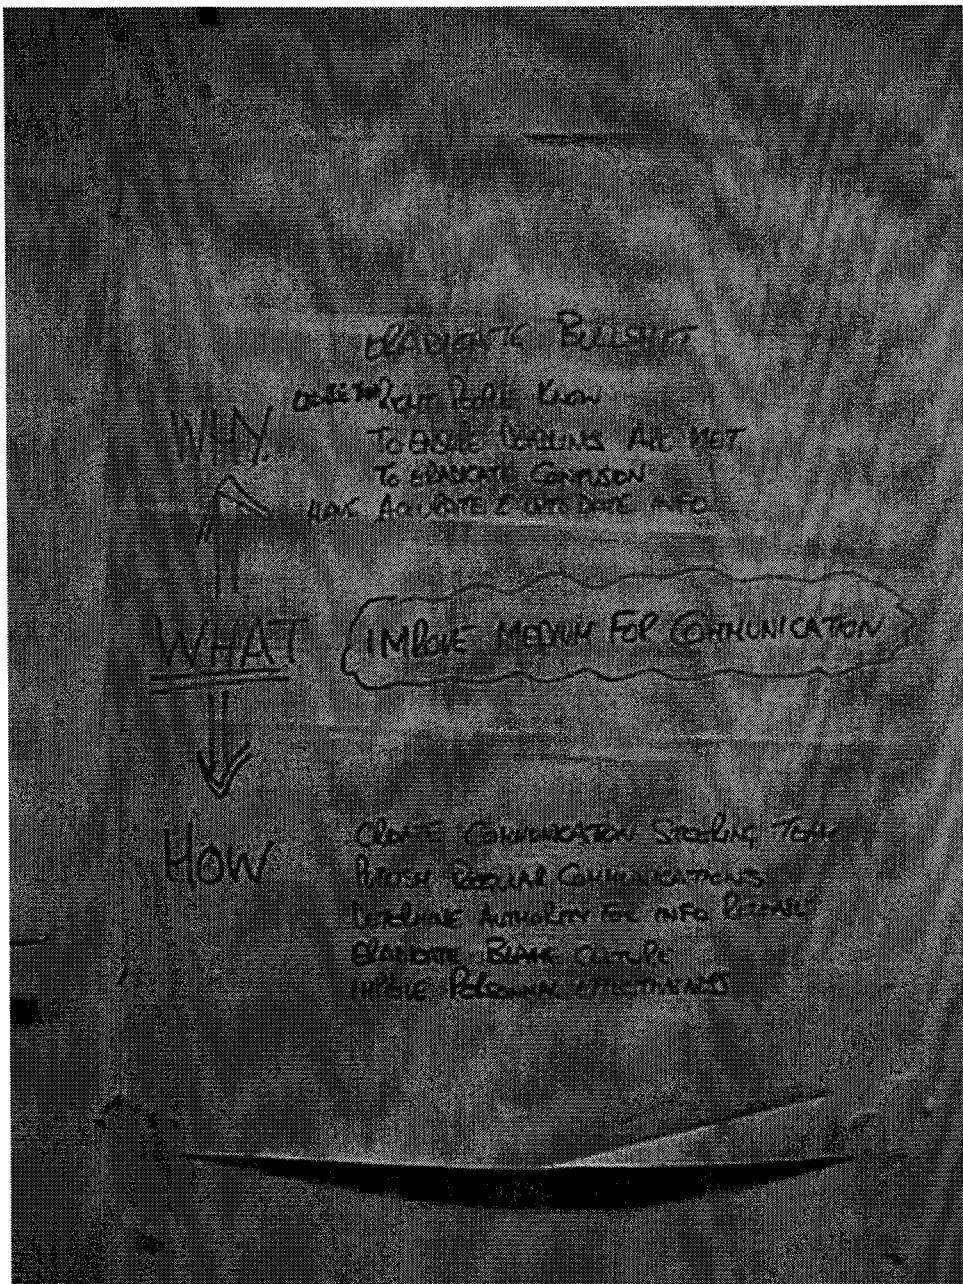 ERADICATE BULLSHIT
WHY. RIGHT PEOPLE KNOW
TO ENSURE DEADLINES ARE MET
TO ERADICATE CONFUSION
HAVE ACCURATE & UP TO DATE INFO
WHAT IMPROVE MEDIUM FOR COMMUNICATION
HOW CREATE COMMUNICATION STEERING TEAM
PUBLISH REGULAR COMMUNICATIONS
DETERMINE AUTHORITY FOR INFO
ERADICATE BLAME CULTURE
IMPROVE PERSONAL EFFECTIVENESS